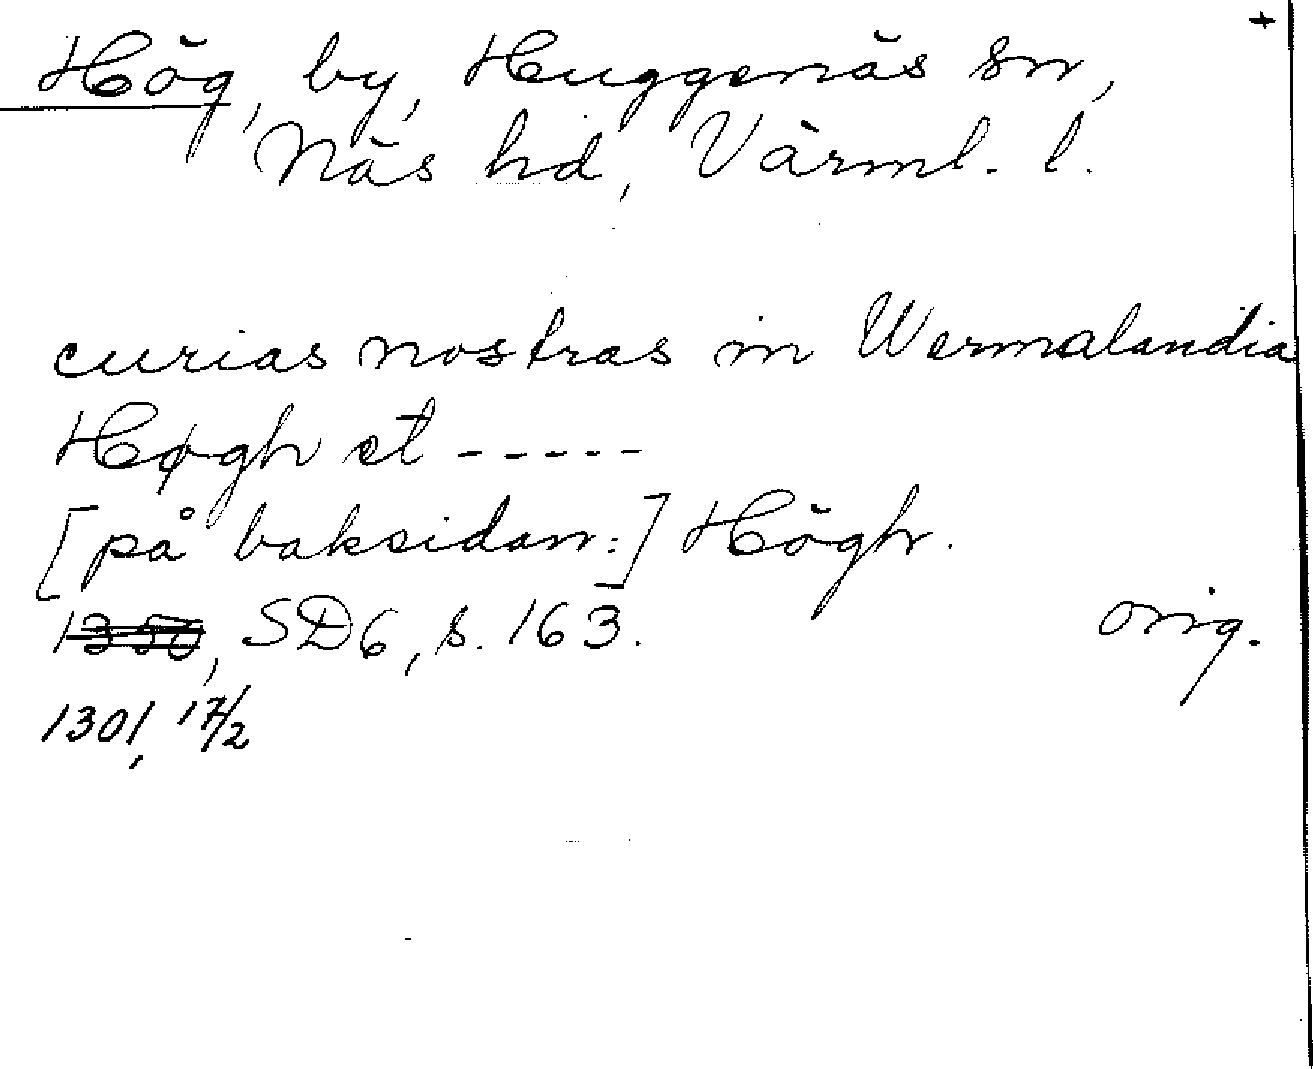 +
Hög, by, Huggenäs sn,
Näs hd, Värml. l.
curias nostras in Wermalandia
Høgh et -----
[på baksidan:] Högh.
1350, SD6, s. 163. orig.
1301, 17/2